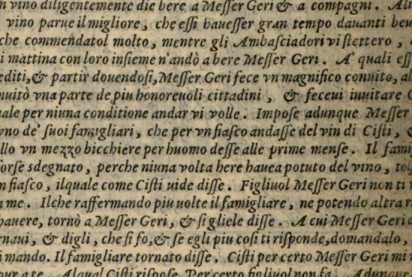 n vino diligentemente die bere a Messer Geri & a compagni. Alt
vino parue il migliore, che essi hauesser gran tempo dauanti beu
che commendatol molto, mentre gli Ambasciadori vi stettero,
i mattina con loro insieme n'andò a bere Messer Geri. A' quali ess
editi, & partir douendosi, Messer Geri fece vn magnifico conuito, al
nuitò vna parte de piu honoreuoli cittadini, & feceui inuitare C
ale per niuna conditione andar vi volle. Impose adunque Messer
no de' suoi famigliari, che per vn fiasco andasse del vin di Cisti, &
llo vn mezzo bicchiere per huomo desse alle prime mense. Il fami
forse sdegnato, perche niuna volta bere hauea potuto del vino, tol
n fiasco, ilquale come Cisti uide disse. Figliuol Messer Geri non ti
a me. Ilche raffermando piu uolte il famigliare, ne potendo altra r
hauere, tornò a Messer Geri, & si gliele disse. A cui Messer Geri
rnaui, & digli, che si fo, & se egli piu cosi ti risponde, domandalo,
i mando. Il famigliare tornato disse. Cisti per certo Messer Geri mi
pur a te. Alqual Cisti rispose. Per certo figliuol non fa. Adunqu